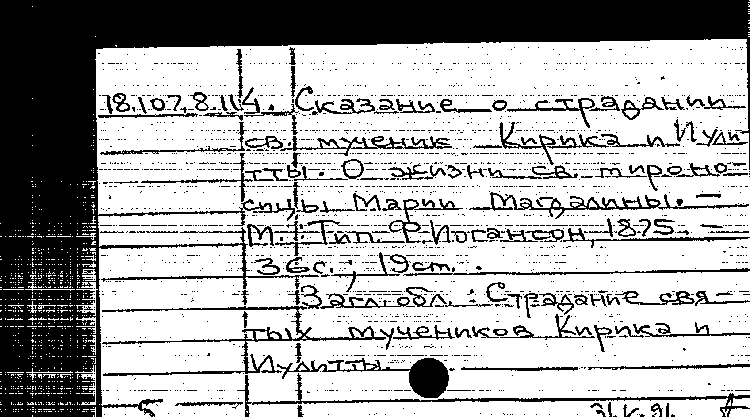 18.107.8.114. Сказание о страдании
св. мученик Кирика и Иули-
тты. О жизни св. мироно-
сицы Марии Магдалины. —
М.: Тип. Ф. Иогансон, 1875. —
36с.; 19см.
Загл. обл.: Страдание свя-
тых мучеников Кирика и
Иулитты.